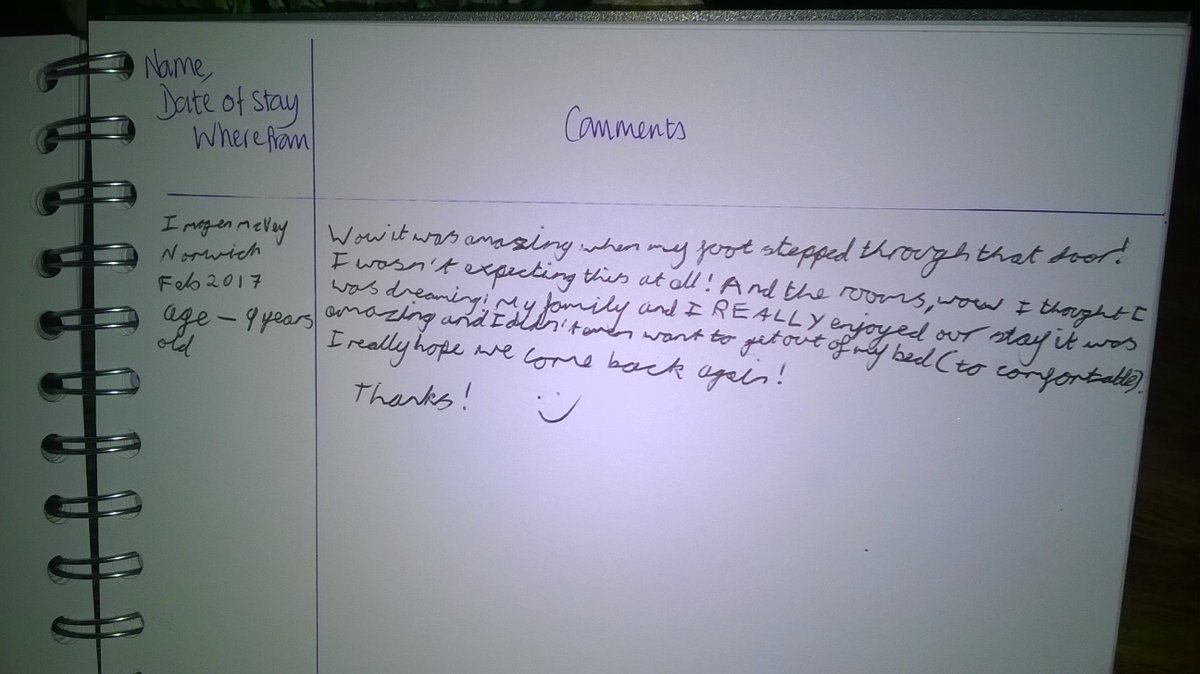 Name,
Date of Stay
Where from
Comments
Imogen McVey
Norwich
Feb 2017
age - 9 years
old
Wow it was amazing when my foot stepped through that door!
I wasn't expecting this at all! And the rooms, wow I thought I
was dreaming! My family and I REALLY enjoyed our stay it was
amazing and I didn't even want to get out of my bed (to comfortable).
I really hope we come back again!
Thanks! :)